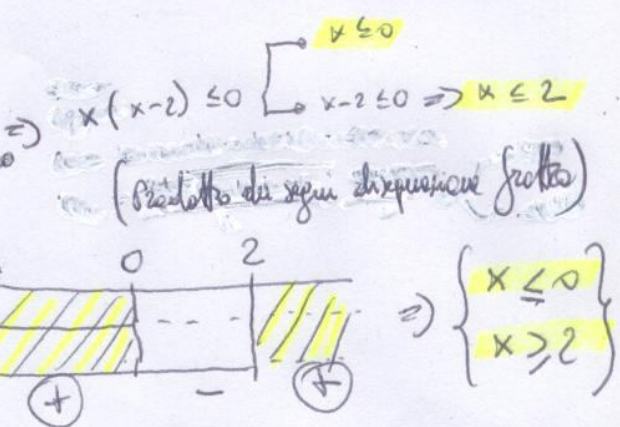 x ≤ 0
=> x(x-2) ≤ 0 x-2 ≤ 0 => x ≤ 2
(Prodotto dei segni disequazione fratta)
0 2
=> { x ≤ 0
x ≥ 2 }
+ - +